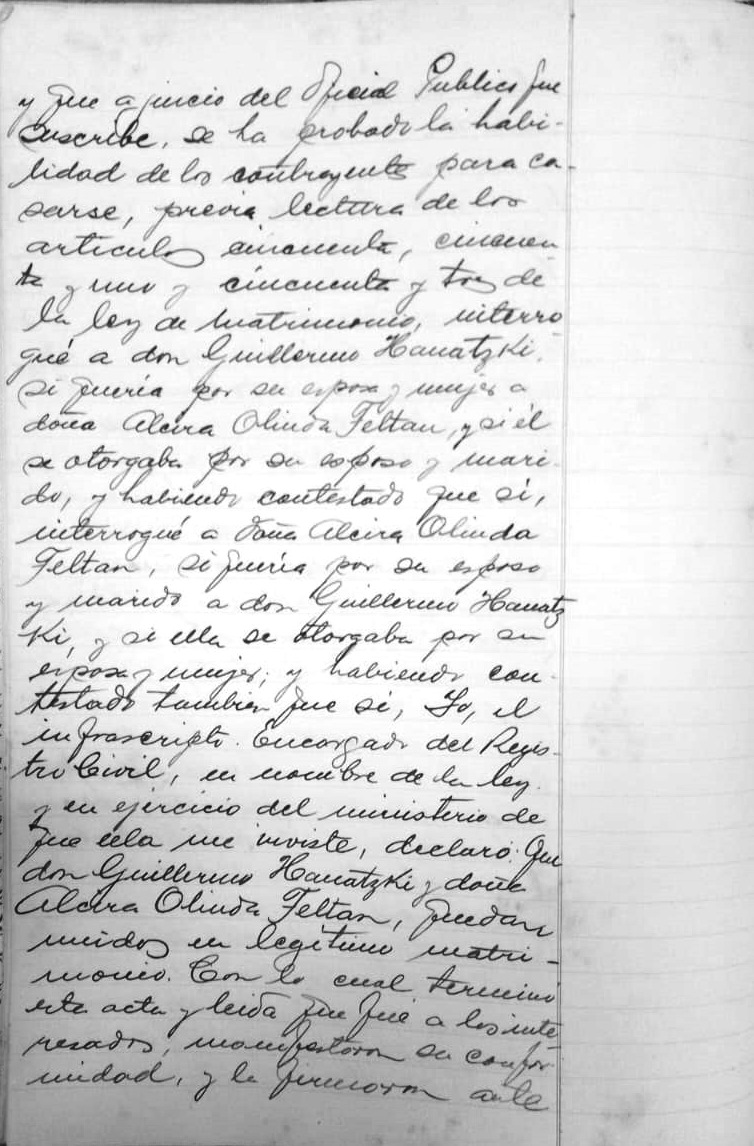 y que a juicio del Oficial Publico que
suscribe, se ha probado la habi-
lidad de los contrayentes para ca-
sarse, previa lectura de los
articulos cincuenta, cincuen
ta y uno y cincuenta y tres de
la ley de matrimonio, interro
gué a don Guillermo Hanatzki,
si queria por su esposa y mujer a
doña Alcira Olinda Feltan, y si él
se otorgaba por su esposo y mari-
do, y habiendo contestado que sí,
interrogué a doña Alcira Olinda
Feltan, si queria por su esposo
y marido a don Guillermo Hanatz
ki, y si ella se otorgaba por su
esposa y mujer; y habiendo con-
testado tambien que sí, Yo, el
infrascripto Encargado del Regis-
tro Civil, en nombre de la ley
y en ejercicio del ministerio de
que ella me inviste, declaró: Que
don Guillermo Hanatzki y doña
Alcira Olinda Feltan, quedan
unidos en legítimo matri-
monio. Con lo cual terminó
esta acta y leida que fué a los inte
resados, manifestaron su confor-
midad, y la firmaron ante